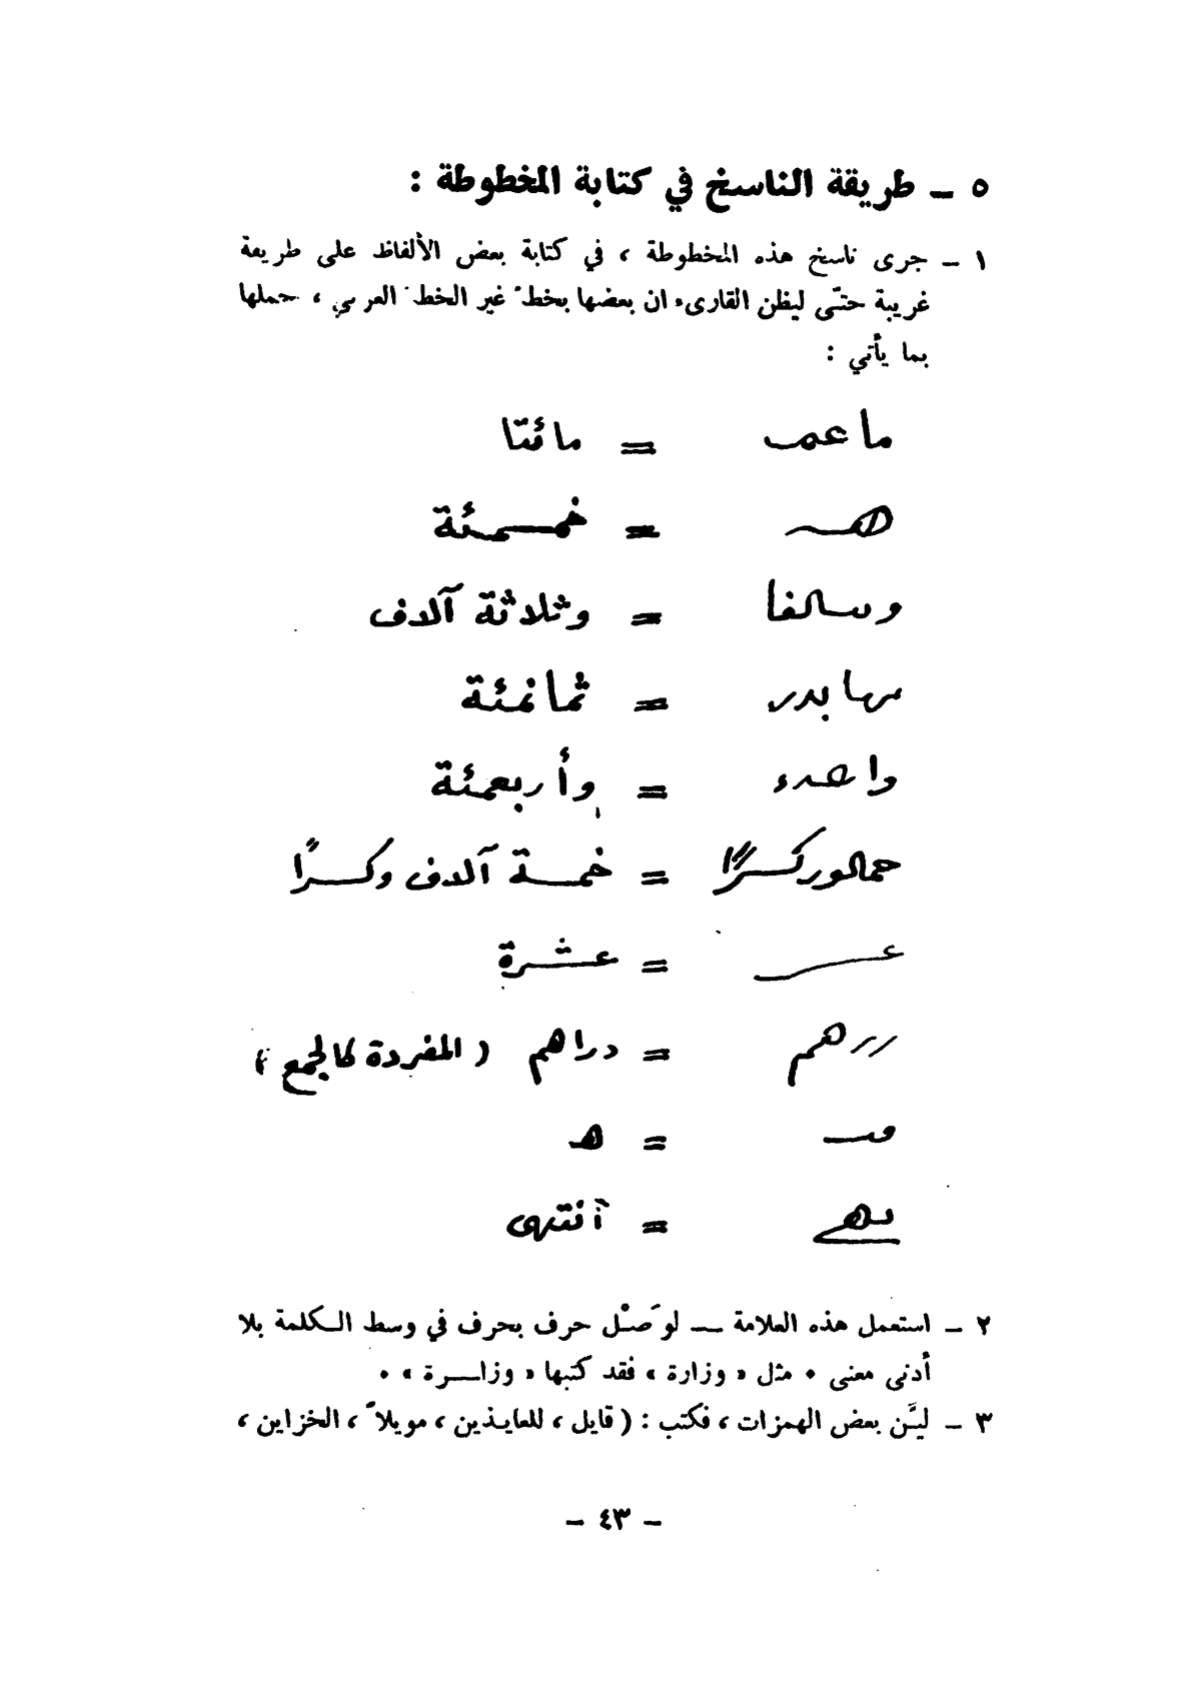 ٥ ــ طريقة الناسخ في كتابة المخطوطة :
١ ــ جرى ناسخ هذه المخطوطة ، في كتابة بعض الألفاظ على طريقة
غريبة حتّى ليظن القارىء ان بعضها بخط غير الخط العربي ، جملها
بما يأتي :
= مائتا
= خمسمئة
= وثلاثة آلاف
= ثمانمئة
= وأربعمئة
= خمسة آلاف وكسرًا
= عشرة
= دراهم ( المفردة كالجمع )
= هـ
= انتهى
٢ ــ استعمل هذه العلامة ـــ لوَصْل حرف بحرف في وسط الكلمة بلا
أدنى معنى ٠ مثل « وزارة » فقد كتبها « وزاـــرة » ٠
٣ ــ ليَّن بعض الهمزات ، فكتب : ( قايل ، للعايذين ، مويلاً ، الخزاين ،
ــ ٤٣ ــ